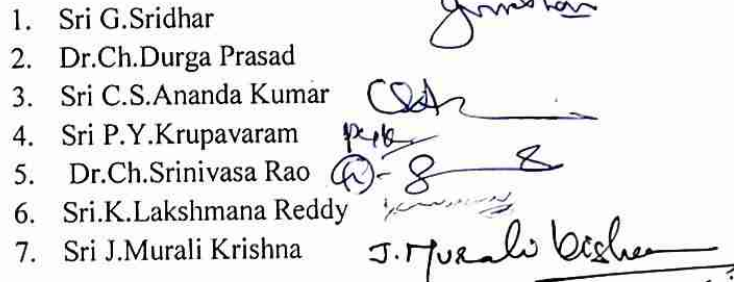 1. Sri G.Sridhar
2. Dr.Ch.Durga Prasad
3. Sri C.S.Ananda Kumar
4. Sri P.Y.Krupavaram
5. Dr.Ch.Srinivasa Rao
6. Sri.K.Lakshmana Reddy
7. Sri J.Murali Krishna J. Murali